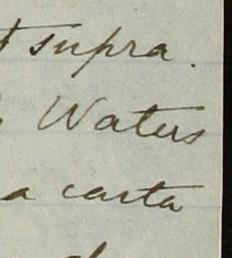 supra.
Waters
a carta